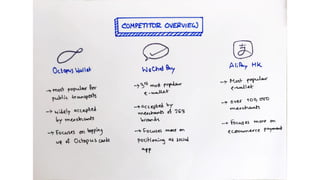 COMPETITOR OVERVIEW
Octopus Wallet
→ most popular for
public transports
→ widely accepted
by merchants
→ Focuses on topping
up of Octopus cards
WeChat Pay
→ 3rd most popular
e-wallet
→ accepted by
merchants of 263
brands
→ Focuses more on
positioning as social
app
AliPay HK
→ Most popular
e-wallet
→ over 100,000
merchants
→ focuses more on
ecommerce payment